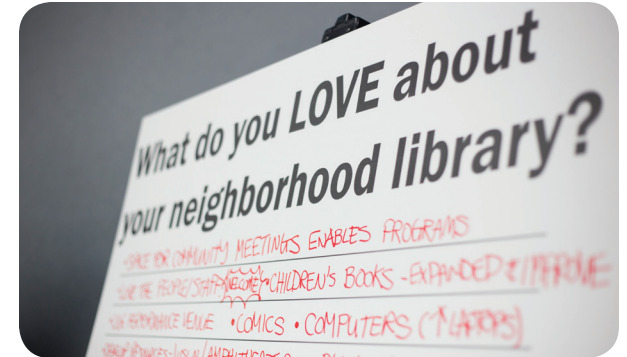 What do you LOVE about
your neighborhood library?
• SPACE FOR COMMUNITY MEETINGS ENABLES PROGRAMS
THE PEOPLE/STAFF WELCOME! • CHILDREN'S BOOKS - EXPANDED & IMPROVE
PERFORMANCE VENUE • COMICS • COMPUTERS (↑ LAPTOPS)